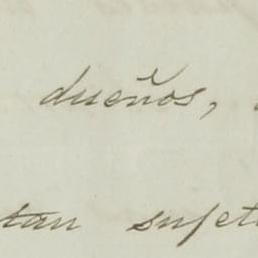 dueños,
tan sujet